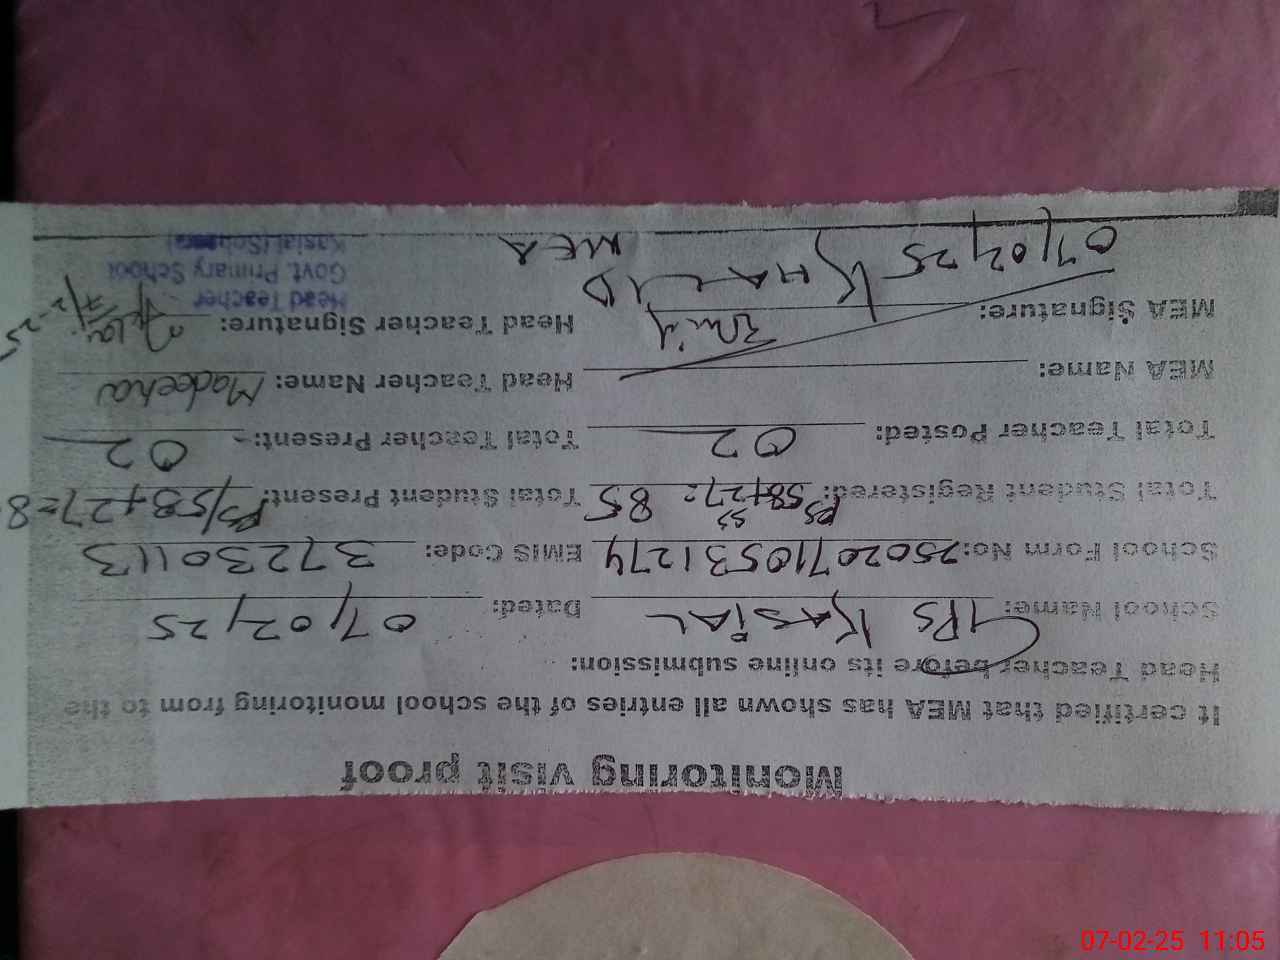 Monitoring visit proof
It certified that MEA has shown all entries of the school monitoring from to the
Head Teacher before its online submission:
School Name: GPS KASIAL Dated: 07/02/25
School Form No: 250207110531274 EMIS Code: 37230113
Total Student Registered: PS 58 + SS 27 = 85 Total Student Present: PS/58+27=8
Total Teacher Posted: 02 Total Teacher Present: 02
MEA Name: Head Teacher Name: Madeeha
MEA Signature: Head Teacher Signature: 7/2-25
KHALID Head Teacher
07/02/25 MEA Govt. Primary School
Kasial (Sohawa)
07-02-25 11:05